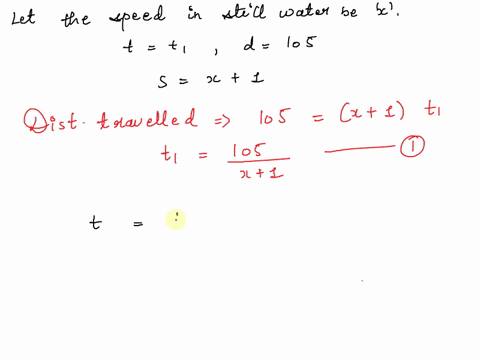 Let the speed in still water be 'x'.
t = t₁ , d = 105
s = x + 1
Dist. travelled => 105 = (x+1) t₁
t₁ = 105/(x+1) ——— ①
t =